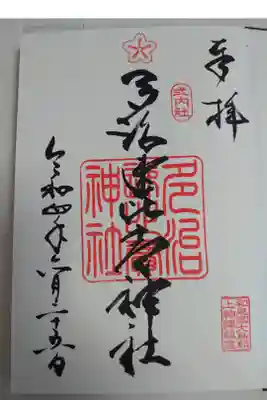 奉拝
式内社
多治速比売神社
多治
速比賣
神社
令和四年
月二十五日